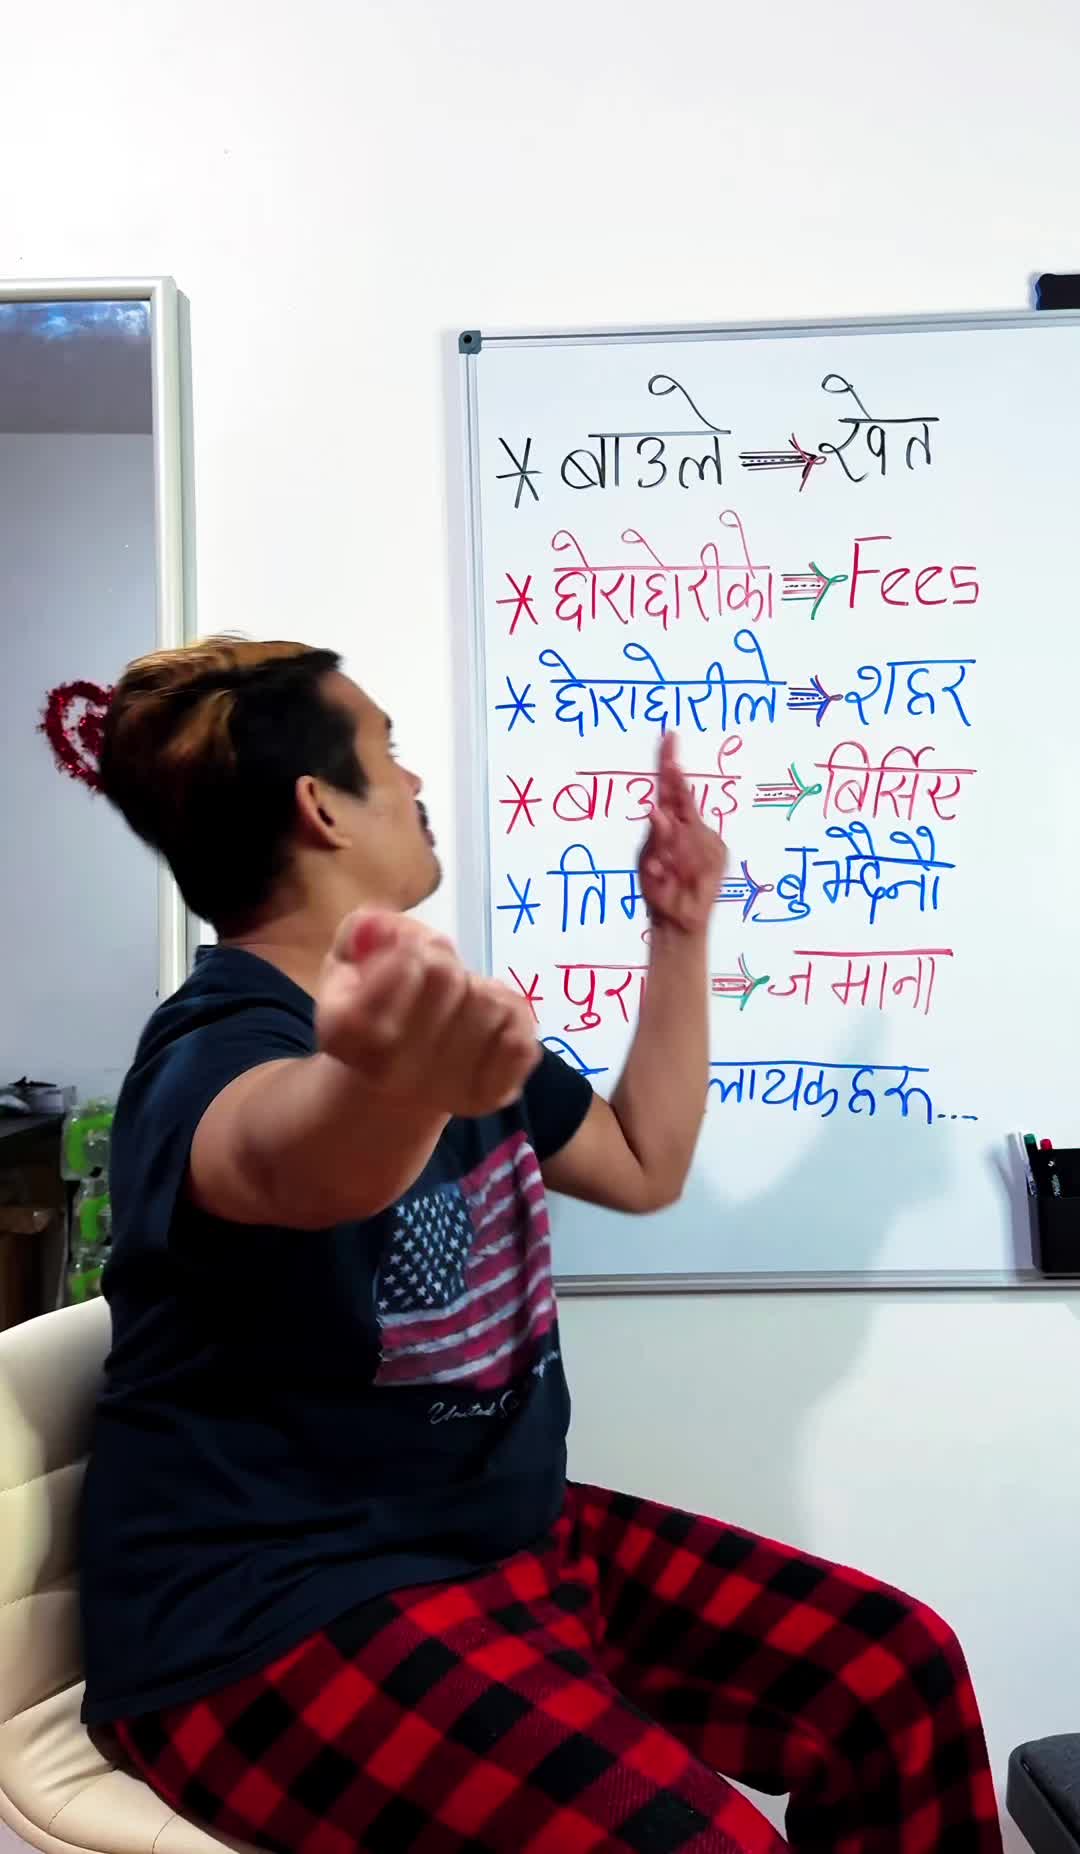 * बाउले ⇒ खेत
* छोराछोरीको ⇒ Fees
* छोराछोरीले ⇒ शहर
* ⇒ बिर्सिए
* ⇒ बुझ्दैनौ
* ⇒ जमाना
लायकहरू...
United